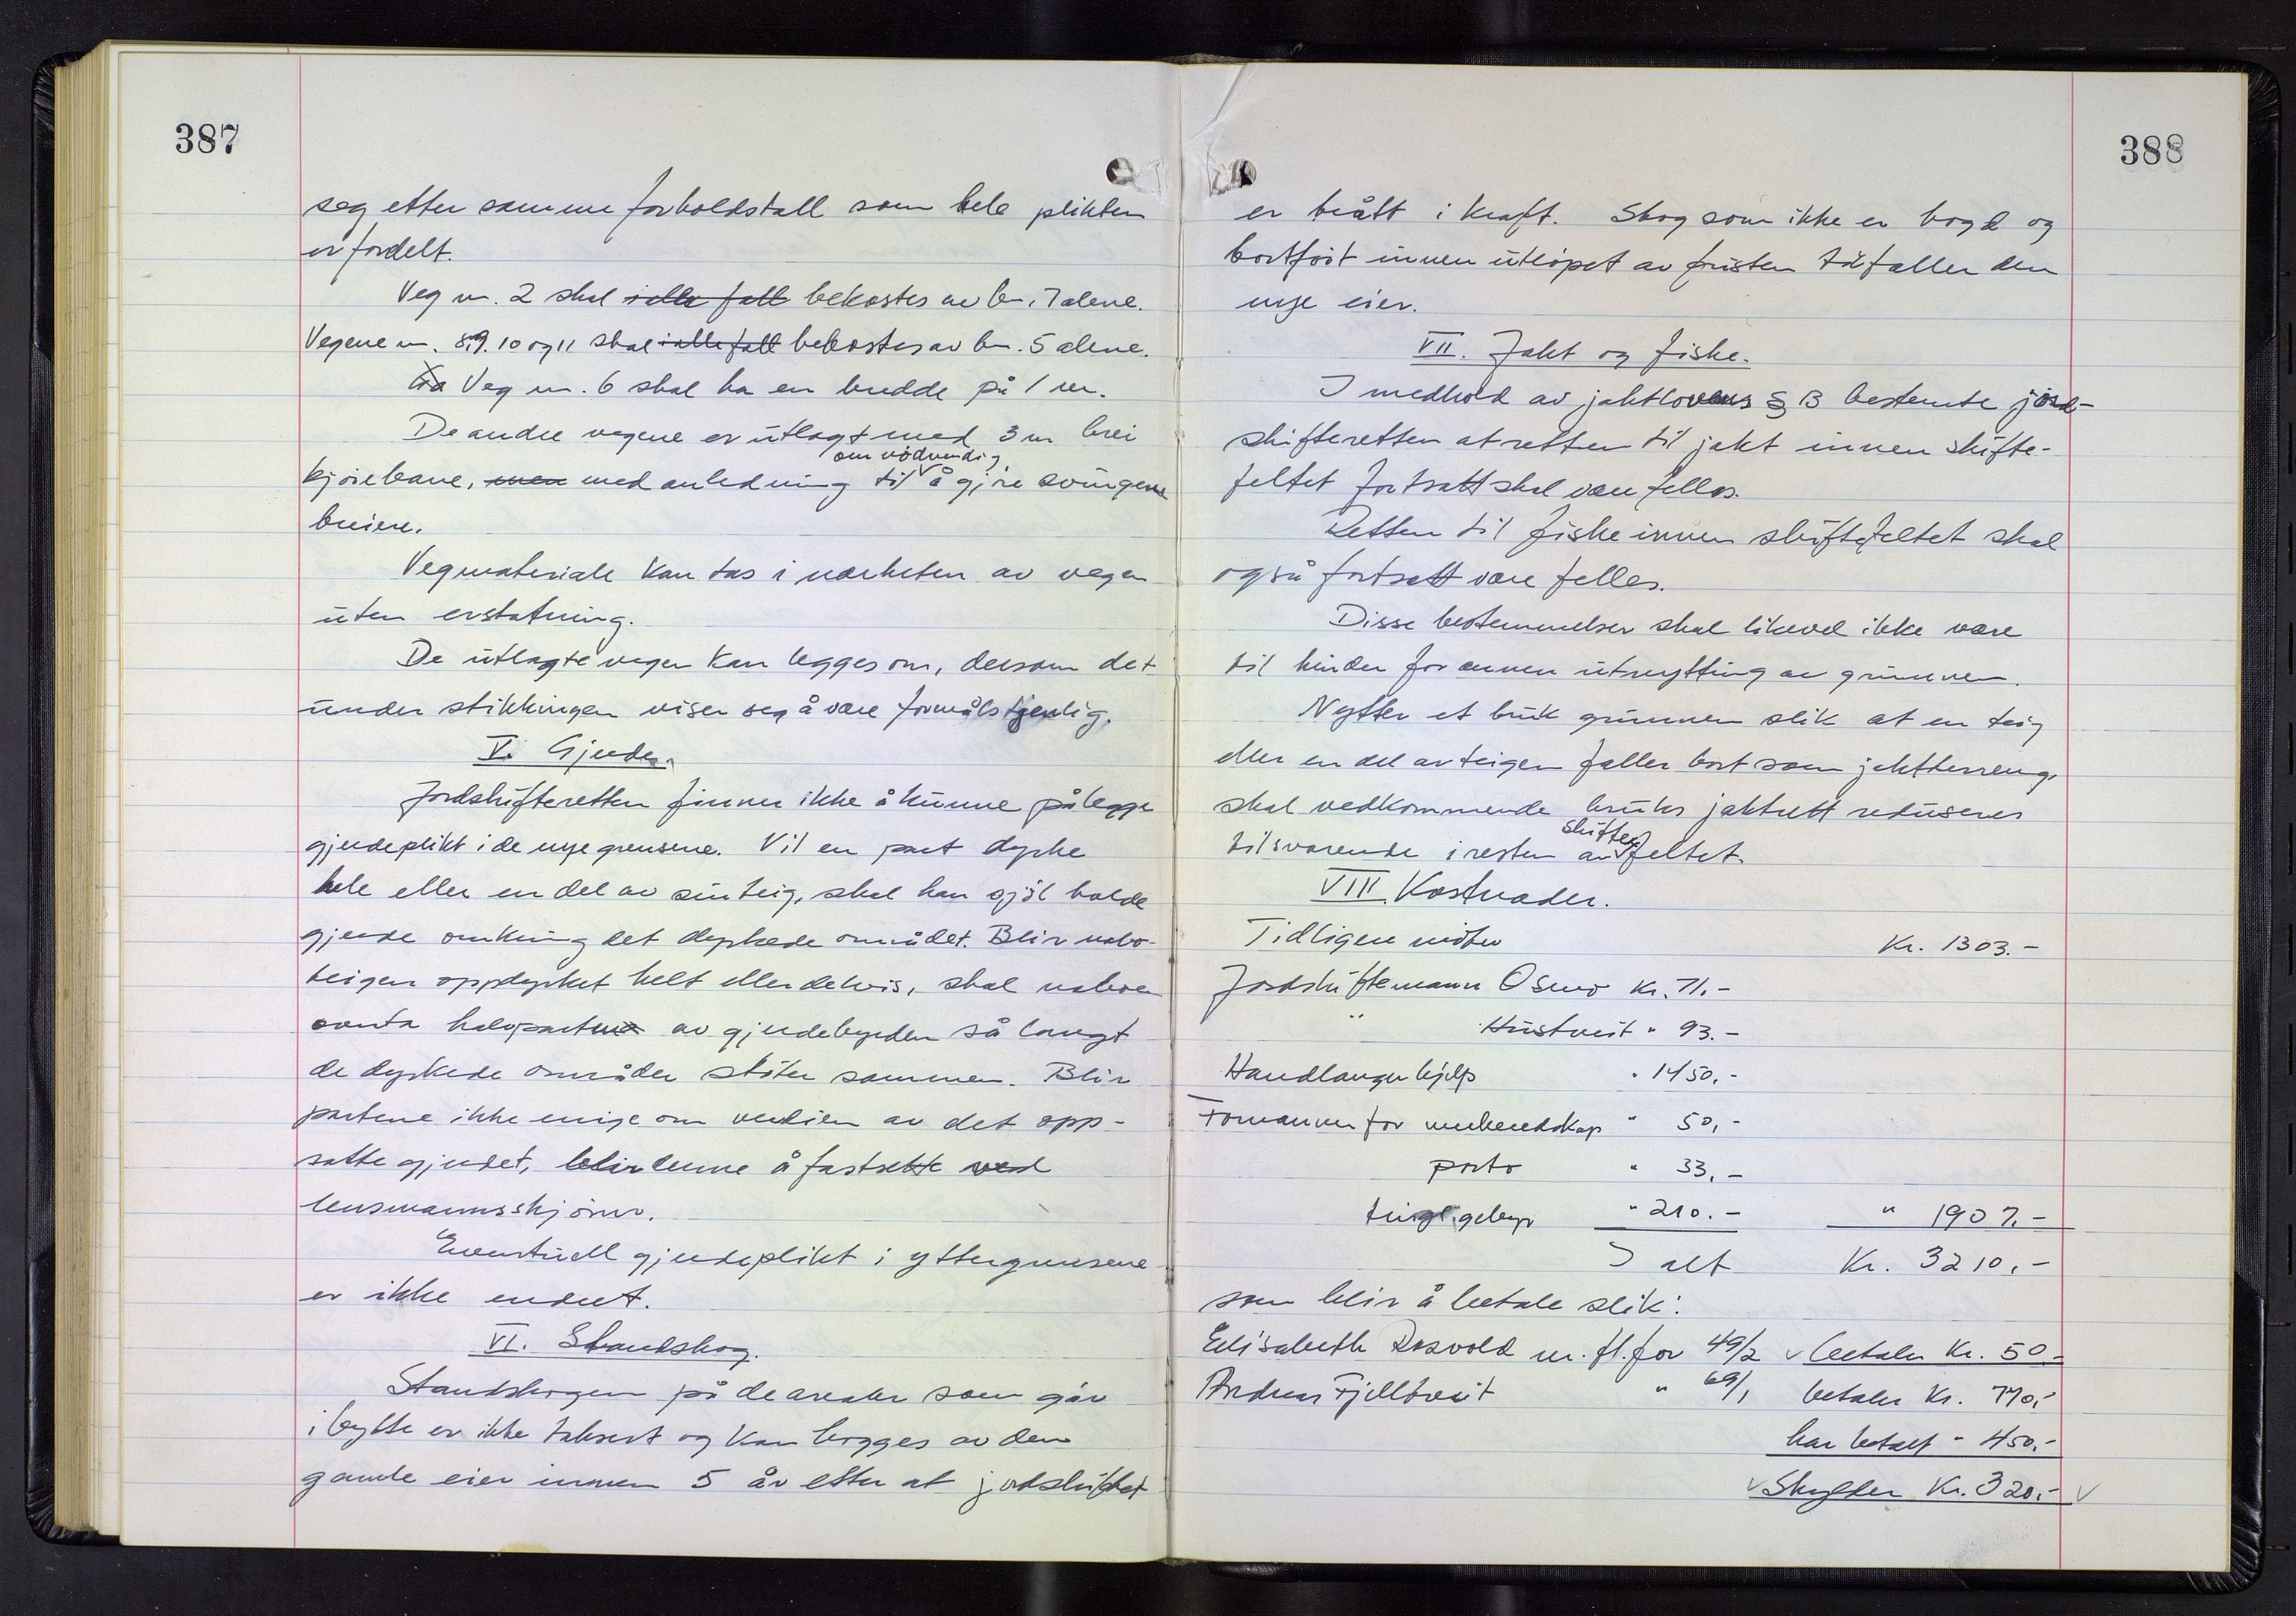 387
seg etter samme forholdstall som hele plikten
er fordelt.
Veg nr. 2 skal i alle fall bekostes av bn. 7 alene.
Vegene nr. 8, 9. 10 og 11 skal i alle fall bekostes av bn. 5 alene.
Veg nr. 6 skal ha en bredde på 1 m.
De andre vegene er utlagt med 3 m brei
om nödvendig
kjörebane, men med anledning til å gjöre svingene
breiere.
Vegmateriale kan tas i nærheten av vegen
uten erstatning.
De utlagte veger kan legges om, dersom det
under stikkingen viser seg å være formålstjenlig.
V. Gjerder.
Jordskifteretten finner ikke å kunne pålegge
gjerdeplikt i de nye grensene. Vil en part dyrke
hele eller en del av sin teig, skal han sjöl holde
gjerde omkring det dyrkede området. Blir nabo-
teigen oppdyrket helt eller delvis, skal naboen
overta halvparten av gjerdebyrden så langt
de dyrkede områder stöter sammen. Blir
partene ikke enige om verdien av det opp-
satte gjerdet, blir denne å fastsette ved
lensmannsskjönn.
Eventuell gjerdeplikt i yttergrensene
er ikke endret.
VI. Standskog.
Standskogen på de arealer som går
i bytte er ikke taksert og kan hogges av den
gamle eier innen 5 år etter at jordskiftet
388
er trått i kraft. Skog som ikke er hogd og
bortfört innen utlöpet av fristen tilfaller den
nye eier.
VII. Jakt og fiske.
I medhold av jaktlovens § 13 bestemte jord-
skifteretten at retten til jakt innen skifte-
feltet fortsatt skal være felles.
Retten til fiske innen skiftefeltet skal
også fortsatt være felles.
Disse bestemmelser skal likevel ikke være
til hinder for annen utnytting av grunnen.
Nytter et bruk grunnen slik at en teig
eller en del av teigen faller bort som jaktterreng,
skal vedkommende bruks jaktrett reduseres
skifte
tilsvarende i resten av feltet.
VIII Kostnader.
Tidligere möter Kr. 1303.-
Jordskiftemann Osmo Kr. 71.-
" Hustveit " 93.-
Handlangerhjelp " 1450,-
Formannen for merkeredskap " 50,-
porto " 33,-
tingl. gebyr " 210.- " 1907,-
I alt Kr. 3210,-
som blir å betale slik:
Elisabeth Rosvold m. fl. for 49/2 betaler Kr. 50.-
Andreas Fjelltveit " 69/1 betaler Kr. 770,-
har betalt " 450.-
Skylder Kr. 320.-